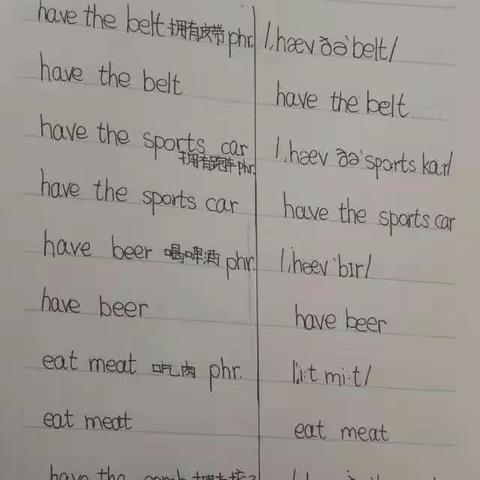 have the belt 拥有皮带 phr. /ˌhæv ðəˈbelt/
have the belt have the belt
have the sports car 拥有跑车 phr. /ˌhæv ðəˈsports kar/
have the sports car have the sports car
have beer 喝啤酒 phr. /ˌhæv ˈbɪr/
have beer have beer
eat meat 吃肉 phr. /ˌi:t mi:t/
eat meat eat meat
have the comb